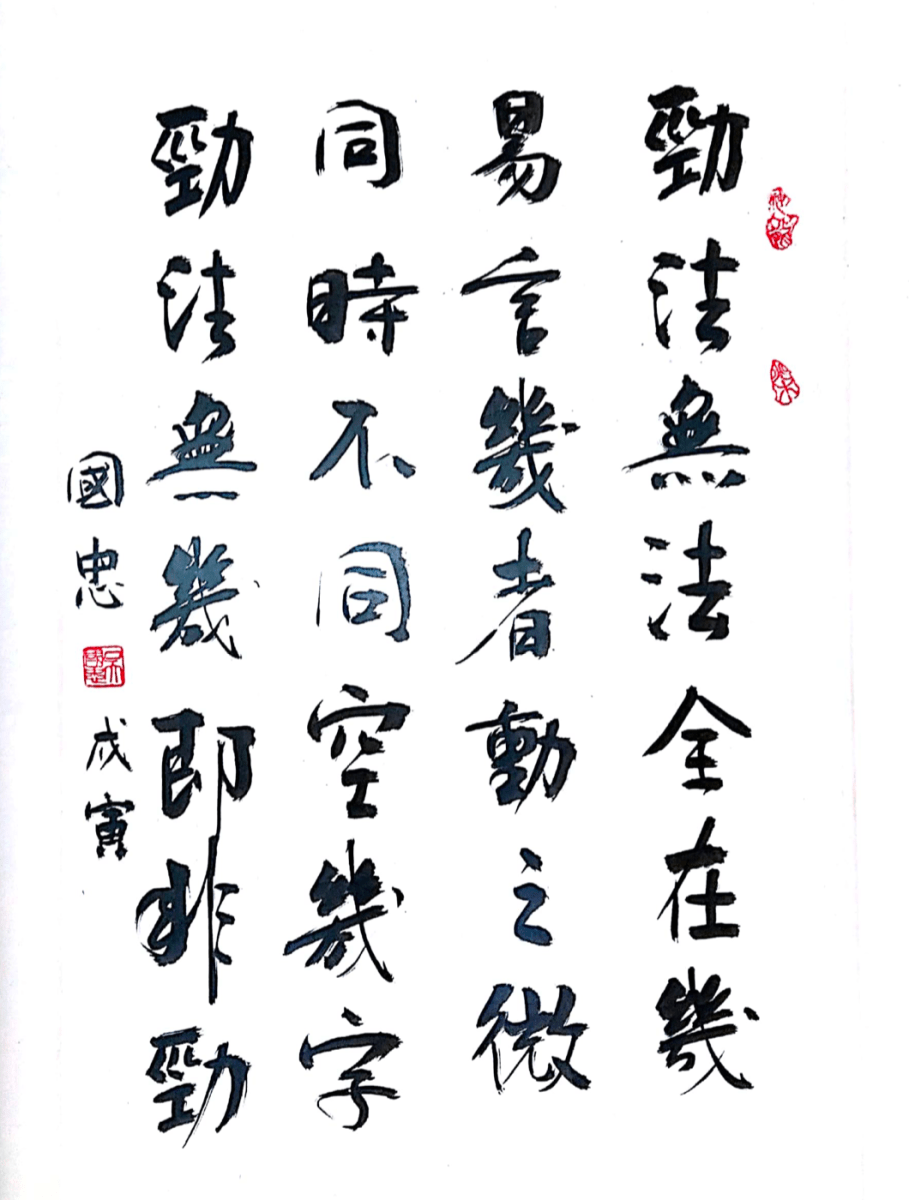 勁法無法全在幾
易言幾者動之微
同時不同空幾字
勁法無幾即非勁
國忠
戊寅